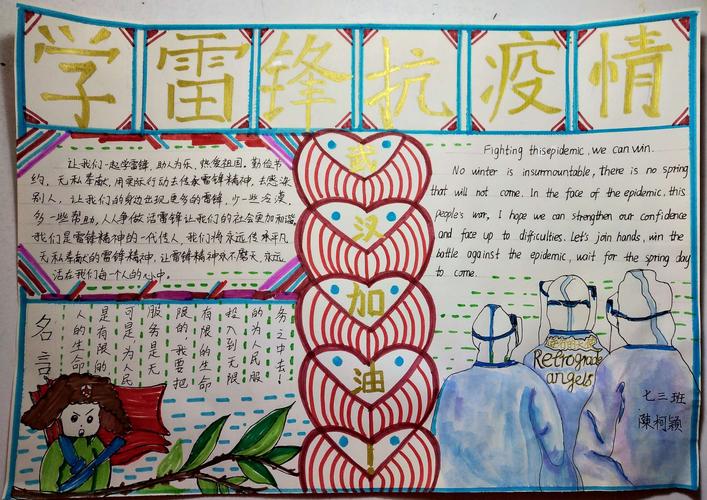 学雷锋抗疫情
让我们一起学雷锋,助人为乐,热爱祖国。勤俭节
约,无私奉献,用实际行动去传承雷锋精神,去感染
别人,让我们的身边出现更多的雷锋,少一些冷漠,
多一些帮助,人人争做活雷锋让我们的社会更加和谐
我们是雷锋精神的一代传人,我们将永远传承平凡
无私奉献的雷锋精神,让雷锋精神永不磨灭,永远
活在我们每一个人的心中。
名言
人的生命
是有限的
可是为人民
服务是无
限的我要把
有限的生命
投入到无限
的为人民服
务之中去!
武
汉
加
油
!
Fighting thisepidemic, we can win.
No winter is insurmountable, there is no spring
that will not come. In the face of the epidemic, this
people's war, I hope we can strengthen our confidence
and face up to difficulties. Let's join hands, win the
battle against the epidemic, wait for the spring day
to come.
Retrograde
angels
七三班
陳柯颖